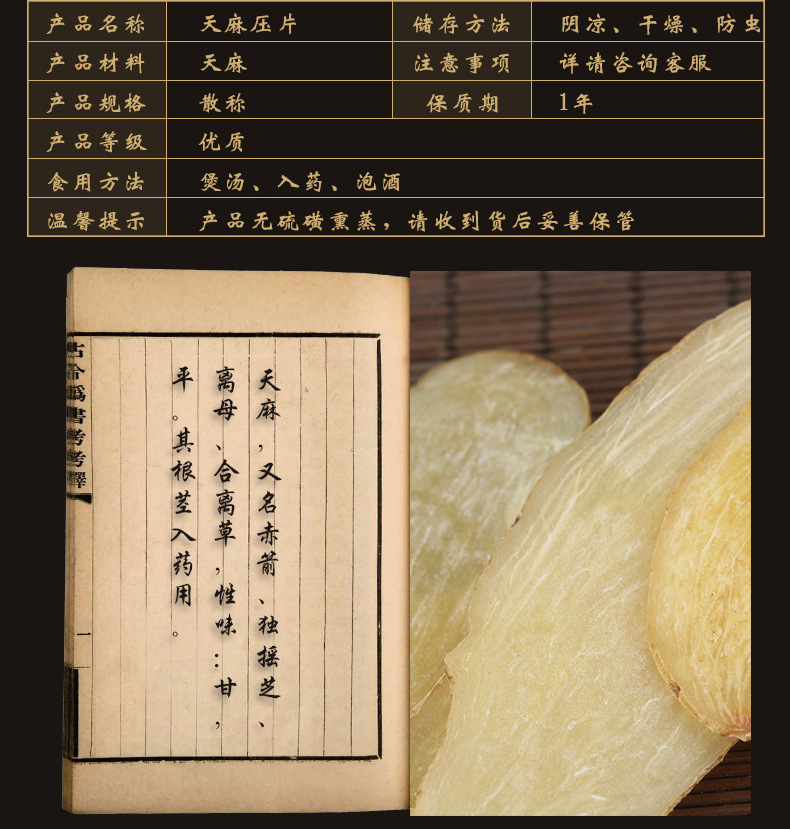 产品名称 天麻压片 储存方法 阴凉、干燥、防虫
产品材料 天麻 注意事项 详请咨询客服
产品规格 散称 保质期 1年
产品等级 优质
食用方法 煲汤、入药、泡酒
温馨提示 产品无硫磺熏蒸，请收到货后妥善保管
天麻，又名赤箭、独摇芝、
离母、合离草，性味：甘，
平。其根茎入药用。
古今偽書考考釋
一